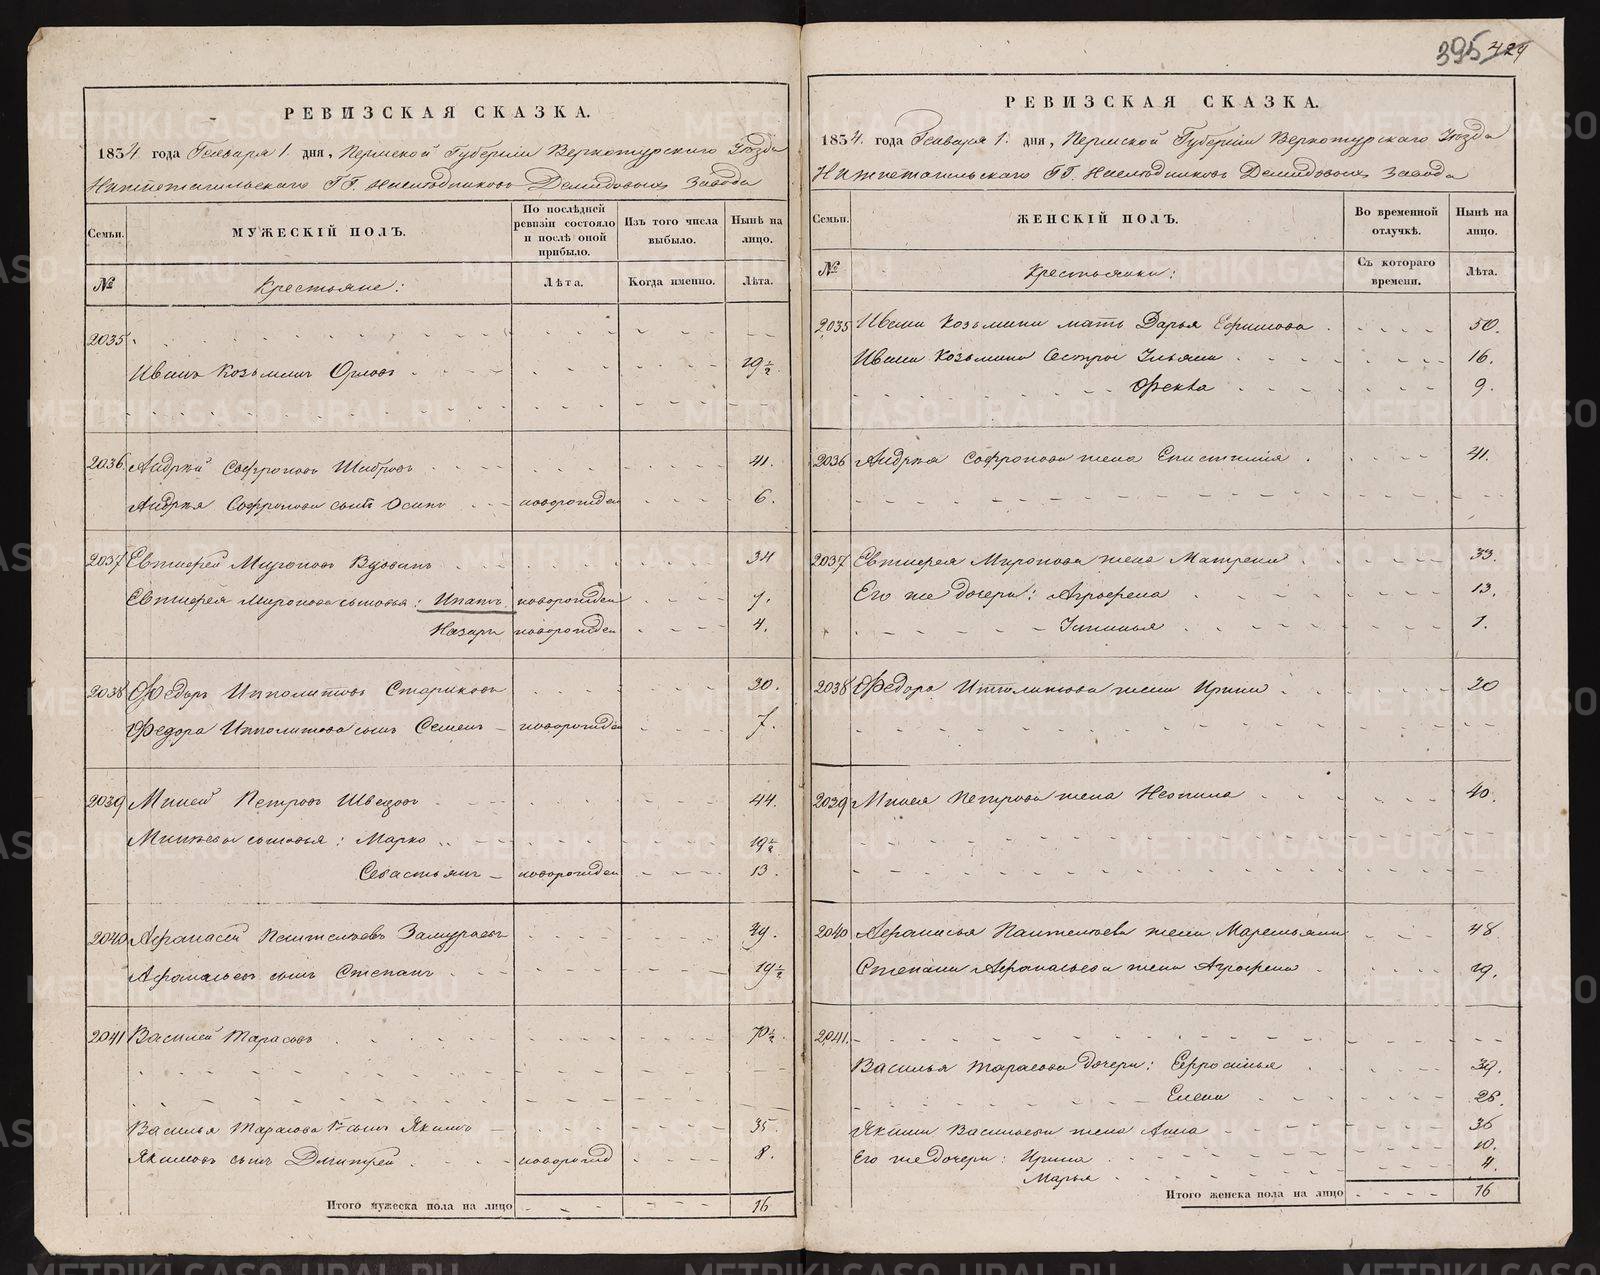 395 429
РЕВИЗСКАЯ СКАЗКА.
1834 года Генваря 1. дня, Пермской Губернии Верхотурскаго Уѣзда
Нижнетагильскаго ГГ. Наслѣдниковъ Демидовыхъ Завода
Семьи. МУЖЕСКІЙ ПОЛЪ. По послѣдней ревизіи состояло и послѣ оной прибыло. Изъ того числа выбыло. Нынѣ на лицо.
№ Крестьяне: Лѣта. Когда именно. Лѣта.
2035.
Иванъ Козьминъ Орловъ 19 ½
2036 Андрей Софроновъ 41.
Андрея Софронова сынъ Осипъ новорожден 6.
2037 Евтифей Мироновъ 34
Евтифея Миронова сыновья: Ипатъ новорожден 7.
Назаръ новорожден 4.
2038 Ѳедоръ Ипполитовъ Стариковъ 30.
Ѳедора Ипполитова сынъ Семенъ новорожден 7.
2039 Миней Петровъ Швецовъ 44.
Минѣевы сыновья: Марко 19 ½
Севастьянъ новорожден 13.
2040 Афанасей Пантелѣевъ 39.
Афанасьевъ сынъ Степанъ 19 ½
2041 Василей Тарасовъ 70 ½
Василья Тарасова сынъ Якимъ 35.
Якимовъ сынъ Дмитрей новорожд 8.
Итого мужеска пола на лицо 16
РЕВИЗСКАЯ СКАЗКА.
1834. года Генваря 1. дня, Пермской Губерніи Верхотурскаго Уѣзда
Нижнетагильскаго ГГ. Наслѣдниковъ Демидовыхъ Завода
Семьи. ЖЕНСКІЙ ПОЛЪ. Во временной отлучкѣ. Нынѣ на лицо.
№ Крестьянки: Съ котораго времени. Лѣта.
2035 Ивана Козьмина мать Дарья Ефимова 50.
Ивана Козьмина сестры Ульяна 16.
Ѳекла 9.
2036 Андрея Софронова жена Епистимія 41.
2037 Евтифея Миронова жена Матрена 33.
Его же дочери: Агрофена 13.
Устинья 1.
2038 Ѳедора Ипполитова жена Ирина 30
2039 Минея Петрова жена Неонила 40.
2040 Афанасья Пантелѣева жена Маремьяна 48
Степана Афанасьева жена Агрофена 19.
2041.
Василья Тарасова дочери: Ефросинья 39.
Елена 26.
Якима Васильева жена Анна 36
Его же дочери: Ирина 10.
Марья 4.
Итого женска пола на лицо 16